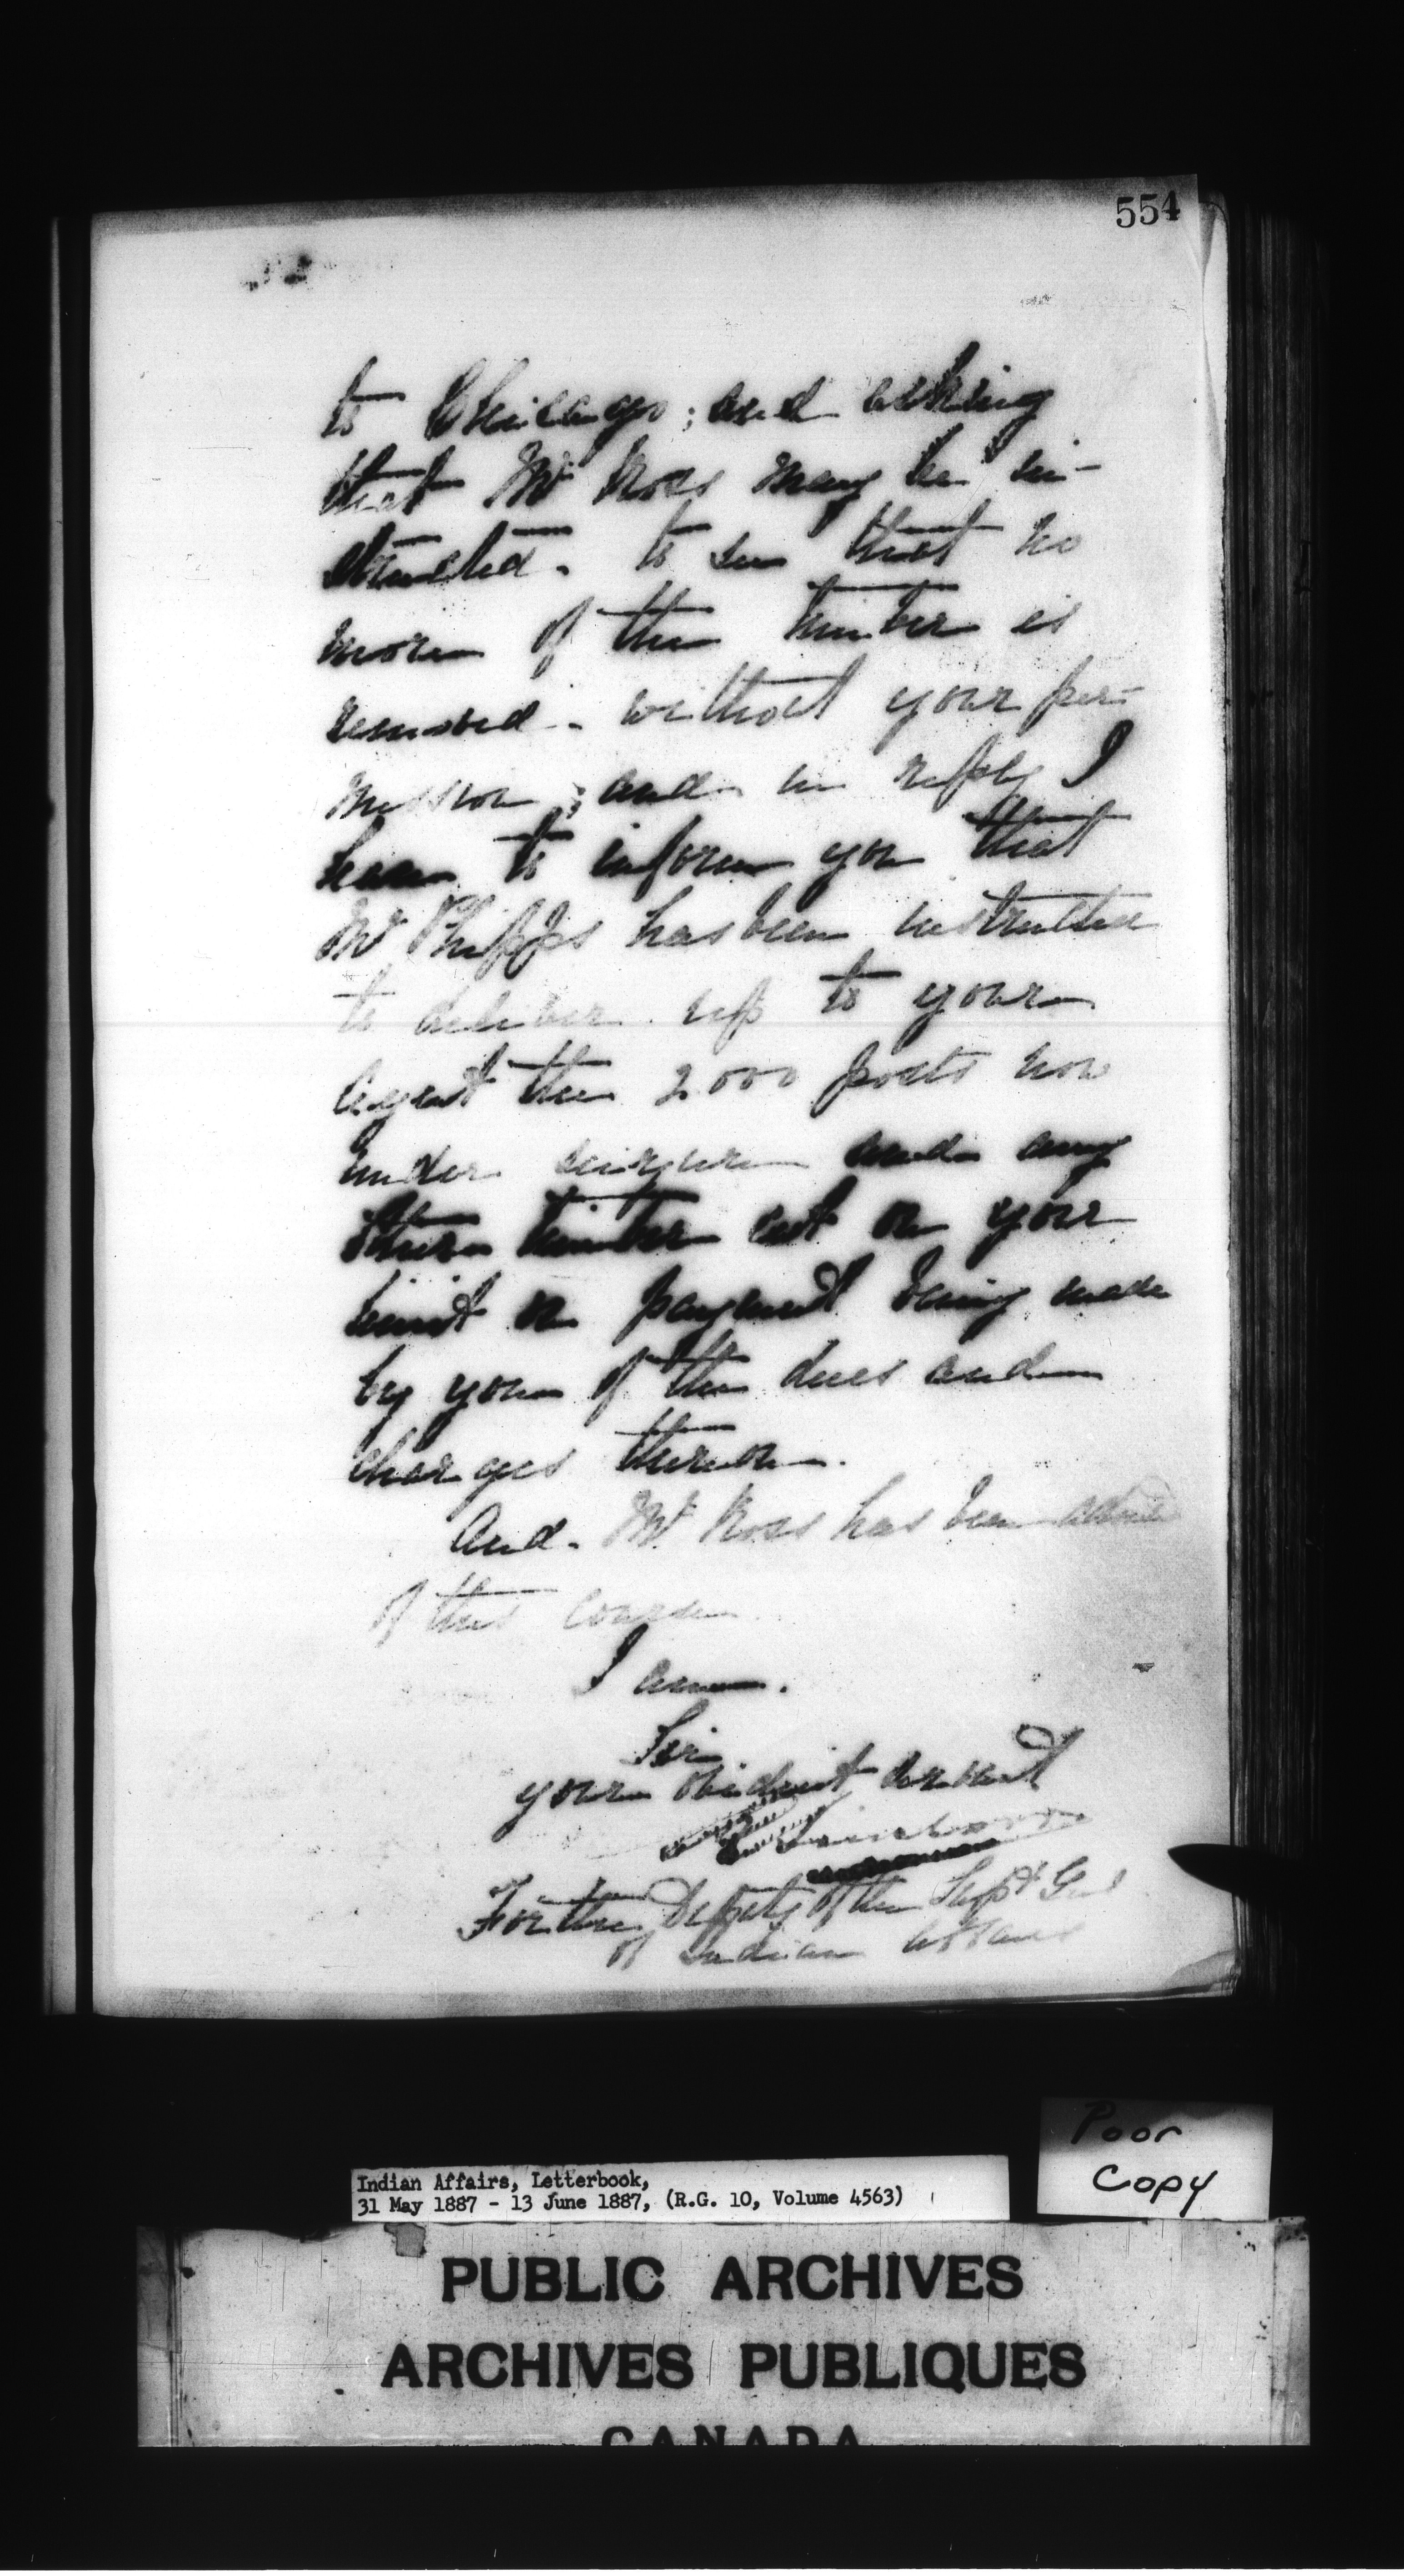 554
to Chicago; and asking
that Mr Ross may be in-
structed. to see that no
more of the timber is
removed. without your per-
mission; and in reply I
have to inform you that
Mr Phipps has been instructed
to deliver up to your
agent the 2000 posts now
under seizure and any
other timber cut on your
limit on payment being made
by you of the dues and
charges thereon.
And. Mr Ross has been advised
of this course
I am.
Sir
your obedient servant
For the Deputy of the Supt Genl
of Indian Affairs
Poor
Copy
Indian Affairs, Letterbook,
31 May 1887 - 13 June 1887, (R.G. 10, Volume 4563)
PUBLIC ARCHIVES
ARCHIVES PUBLIQUES
CANADA